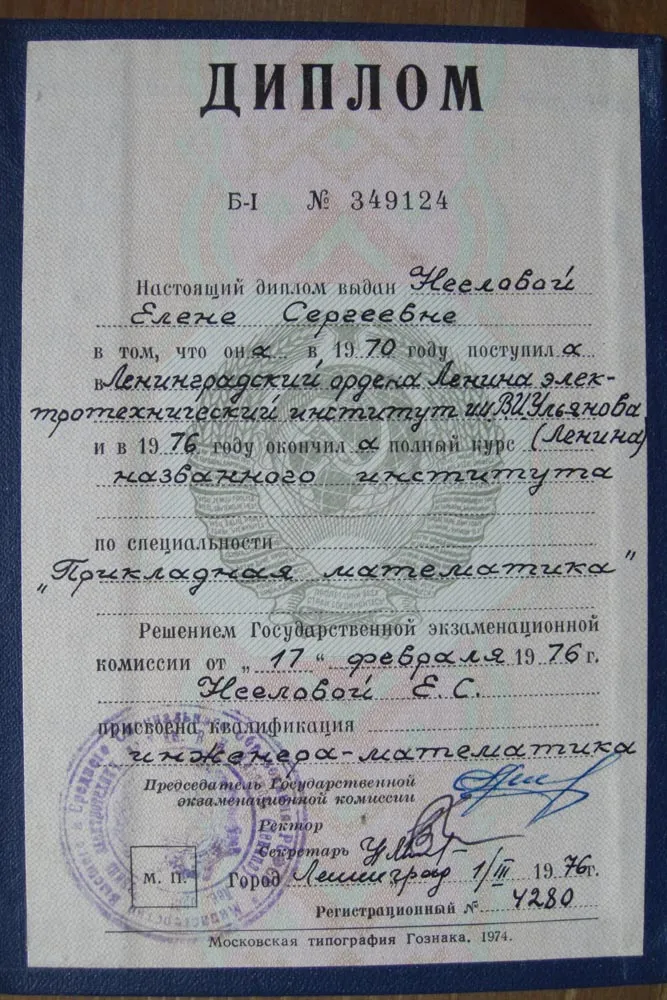 ДИПЛОМ
Б-I № 349124
Настоящий диплом выдан Нееловой
Елене Сергеевне
в том, что она в 1970 году поступила
в Ленинградский ордена Ленина элек-
тротехнический институт им. В.И.Ульянова
и в 1976 году окончила полный курс (Ленина)
названного института
по специальности
„Прикладная математика"
Решением Государственной экзаменационной
комиссии от „17" февраля 1976 г.
Нееловой Е.С.
присвоена квалификация
инженера-математика
Председатель Государственной
экзаменационной комиссии
Ректор
Секретарь
М. П.
Город Ленинград 1/III 1976г.
Регистрационный № 4280
Московская типография Гознака. 1974.